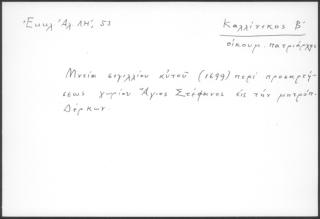 Ἐκκλ Ἀλ. ΛΗ', 53
Καλλίνικος Β'
οἰκουμ. πατριάρχης
Μνεία σιγιλλίου αὐτοῦ (1699) περὶ προσαρτή-
σεως χωρίου Ἅγιος Στέφανος εἰς τὴν μητρόπ.
Δέρκων.